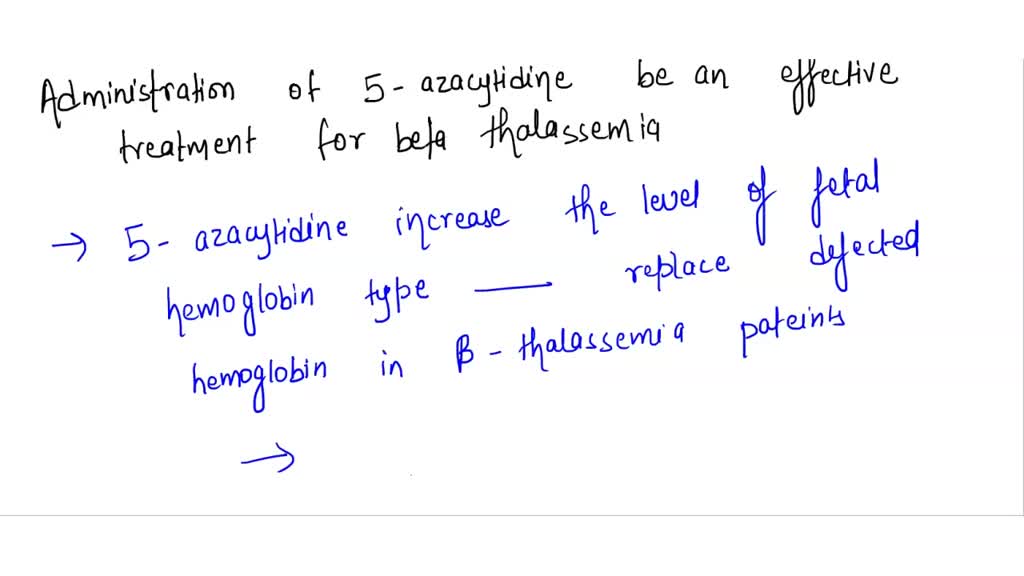 Administration of 5-azacytidine be an effective
treatment for beta thalassemia
→ 5-azacytidine increase the level of fetal
hemoglobin type — replace defected
hemoglobin in β-thalassemia pateints
→